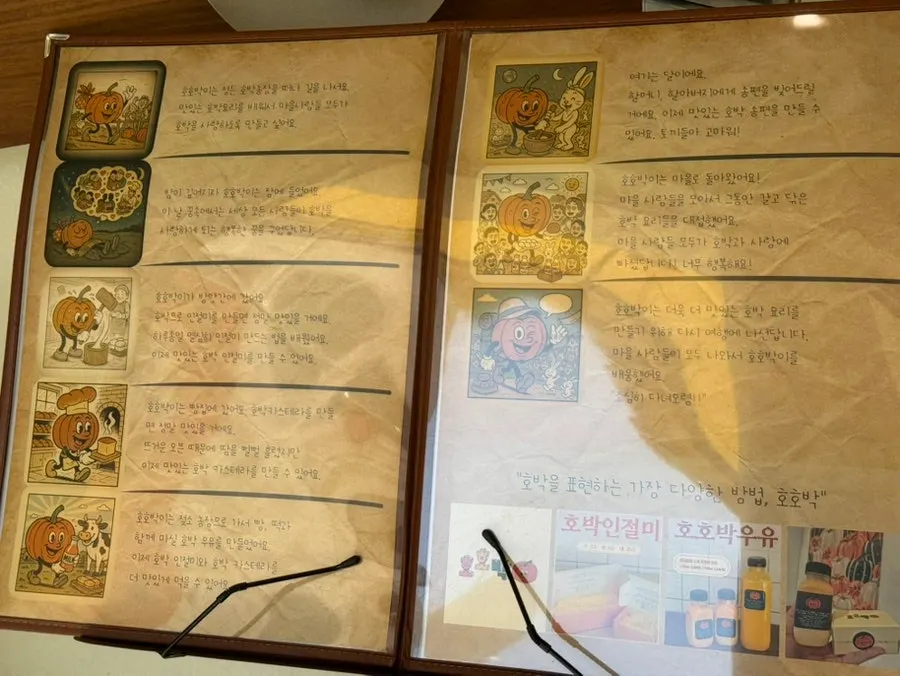 호호박이는 정든 호박농장을 떠나 길을 나서요.
맛있는 호박요리를 배워서 마을사람들 모두가
호박을 사랑하도록 만들고 싶어요.
밤이 깊어지자 호호박이는 잠에 들었어요.
이 날 꿈속에서는 세상 모든 사람들이 호박을
사랑하게 되는 행복한 꿈을 꾸었답니다.
호호박이가 방앗간에 갔어요.
호박으로 인절미를 만들면 정말 맛있을 거예요.
하루종일 열심히 인절미 만드는 법을 배웠어요.
이제 맛있는 호박 인절미를 만들 수 있어요.
호호박이는 빵집에 갔어요. 호박카스테라를 만들
면 정말 맛있을 거예요.
뜨거운 오븐 때문에 땀을 뻘뻘 흘렸지만
이제 맛있는 호박 카스테라를 만들 수 있어요.
호호박이는 젖소 농장으로 가서 빵, 떡과
함께 마실 호박 우유를 만들었어요.
이제 호박 인절미와 호박 카스테라를
더 맛있게 먹을 수 있어요.
여기는 달이에요.
할머니, 할아버지에게 송편을 빚어드릴
거예요. 이제 맛있는 호박 송편을 만들 수
있어요. 토끼들아 고마워!
호호박이는 마을로 돌아왔어요!
마을 사람들을 모아서 그동안 갈고 닦은
호박 요리들을 대접했어요.
마을 사람들 모두가 호박과 사랑에
빠졌답니다! 너무 행복해요!
호호박이는 더욱 더 맛있는 호박 요리를
만들기 위해 다시 여행에 나선답니다.
마을 사람들이 모두 나와서 호호박이를
배웅했어요.
"조심히 다녀오렴!"
"호박을 표현하는 가장 다양한 방법, 호호박"
호박인절미
호호박우유